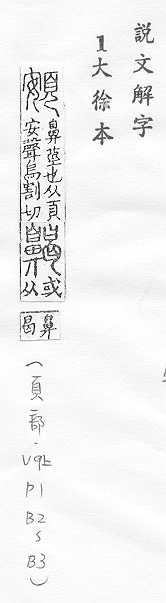 説文解字
1大徐本
頞 鼻莖也从頁
安聲烏割切
齃 或
从
鼻
曷
(頁部・V9上
P1
B2
〜
B3)